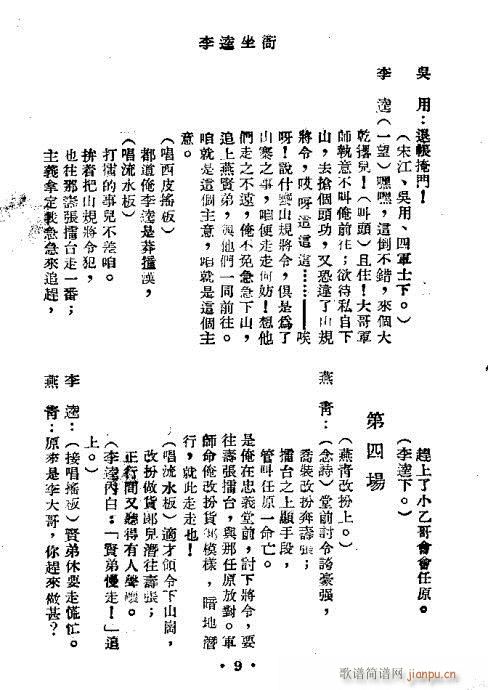 李逵坐衙
吳　用：退帳掩門！
（宋江、吳用、四軍士下。）
李　逵（一望）嘿嘿，這倒不錯，來個大
乾撂兒！（叫頭）且住！大哥軍
師執意不叫俺前往；欲待私自下
山，去搶個頭功，又恐違了山規
將令，哎呀這這這………唉
呀！說什麼山規將令，俱是爲了
山寨之事，咱便走走何妨！想他
們走之不遠，俺不免急急下山，
追上燕賢弟，與他們一同前往。
咱就是這個主意，咱就是這個主
意。
（唱西皮搖板）
都道俺李逵是莽撞漢，
（唱流水板）
打擂的事兒不差咱。
拚着把山規將令犯，
也往那壽張擂台走一番；
主義拿定我急急來追趕，
趕上了小乙哥會會任原。
（李逵下。）
第四場
（燕青改扮上。）
燕　青：（念詩）堂前討令誇豪强，
喬裝改扮奔壽張；
擂台之上顯手段，
管叫任原一命亡。
是俺在忠義堂前，討下將令，要
往壽張擂台，與那任原放對。軍
師命俺改扮貨郎模樣，暗地潛
行，就此走走也！
（唱流水板）適才領令下山崗，
改扮做貨郎兒潛往壽張；
正行間又聽得有人聲嚷。
（李逵內白：「賢弟慢走！」追
上。）
李　逵：（接唱搖板）賢弟休要走慌忙。
燕　青：原來是李大哥，你趕來做甚？
• 9 •
歌谱简谱网
jianpu.cn